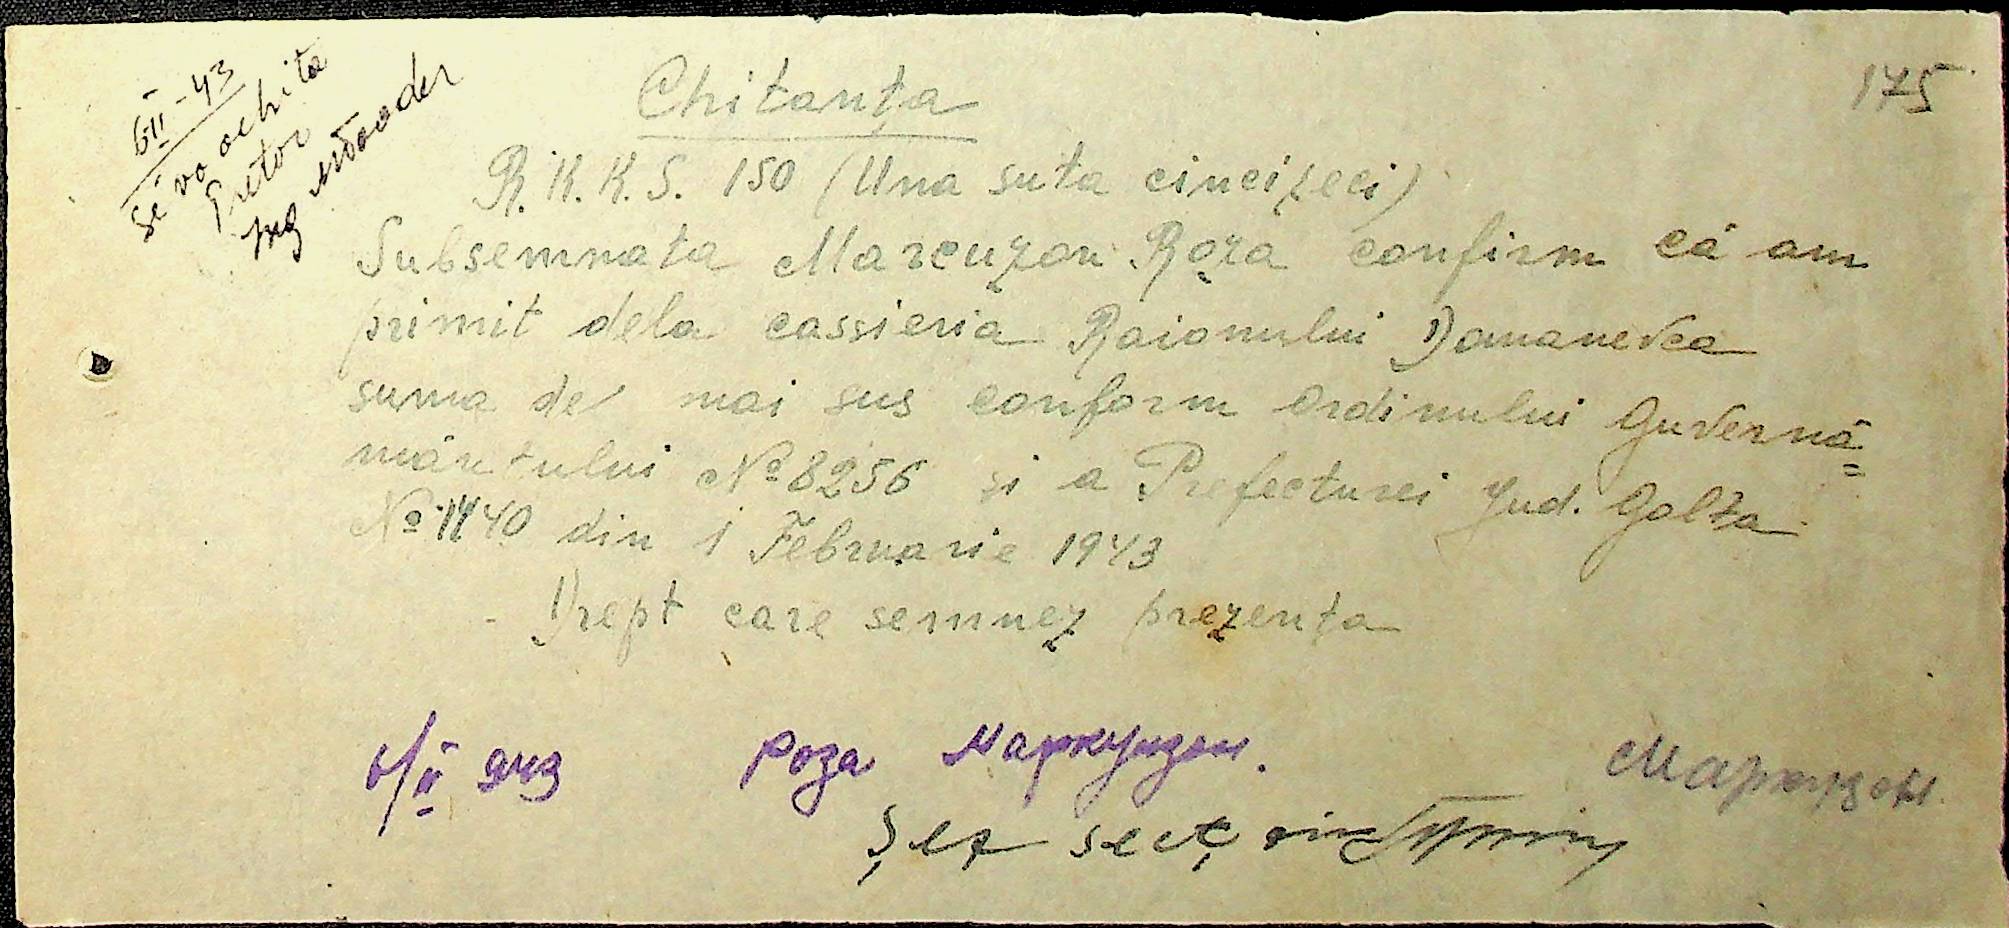 6 II-43
Se va achita
Pretor
175
Chitanța
R.K.K.S. 150 (Una suta cincizeci)
Subsemnata Marcuzon Roza confirm că am
primit dela cassieria Raionului Domanevca
suma de mai sus conform ordinului Guvernă=
mântului № 8256 și a Prefecturei Jud. Golta
№ 1140 din 1 Februarie 1943
- Drept care semnez prezența
6/II 943 Роза Маркузон.
Маркузон
Șef secț